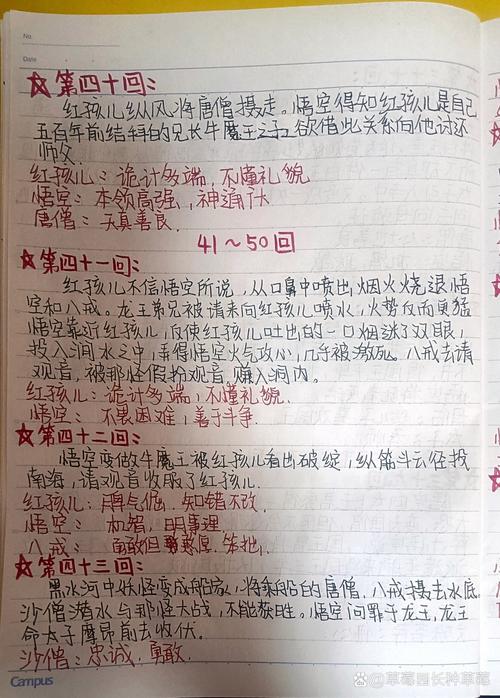 No.
Date
☆第四十回:
红孩儿纵风将唐僧摄走。悟空得知红孩儿是自己
五百年前结拜的兄长牛魔王之子,欲借此关系向他讨还
师父.
红孩儿:诡计多端,不懂礼貌
悟空:本领高强,神通广大
唐僧:天真善良.
41~50回
☆第四十一回:
红孩儿不信悟空所说,从口鼻中喷出烟火烧退悟
空和八戒。龙王弟兄被请来向红孩儿喷水,火势反而更猛
悟空靠近红孩儿,反使红孩儿吐出的一口烟迷了双眼,
投入涧水之中,弄得悟空火气攻心,几乎被激死。八戒去请
观音,被那怪假扮观音,赚入洞内。
红孩儿:诡计多端,不懂礼貌.
悟空:不畏困难,善于斗争.
☆第四十二回:
悟空变做牛魔王被红孩儿看出破绽,纵筋斗云径投
南海,请观音收服了红孩儿.
红孩儿:脾气倔.知错不改.
悟空:机智,明事理
八戒:勇敢但憨厚.笨拙.
☆第四十三回:
黑水河中妖怪变成船家,将乘船的唐僧.八戒摄去水底.
沙僧潜水与那怪大战,不能获胜。悟空问罪于龙王,龙王
命太子摩昂前去收伏。
沙僧:忠诚.勇敢.
Campus
草莓园长种草莓